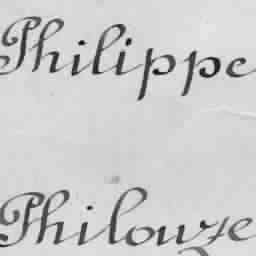 Philippe
Philouze